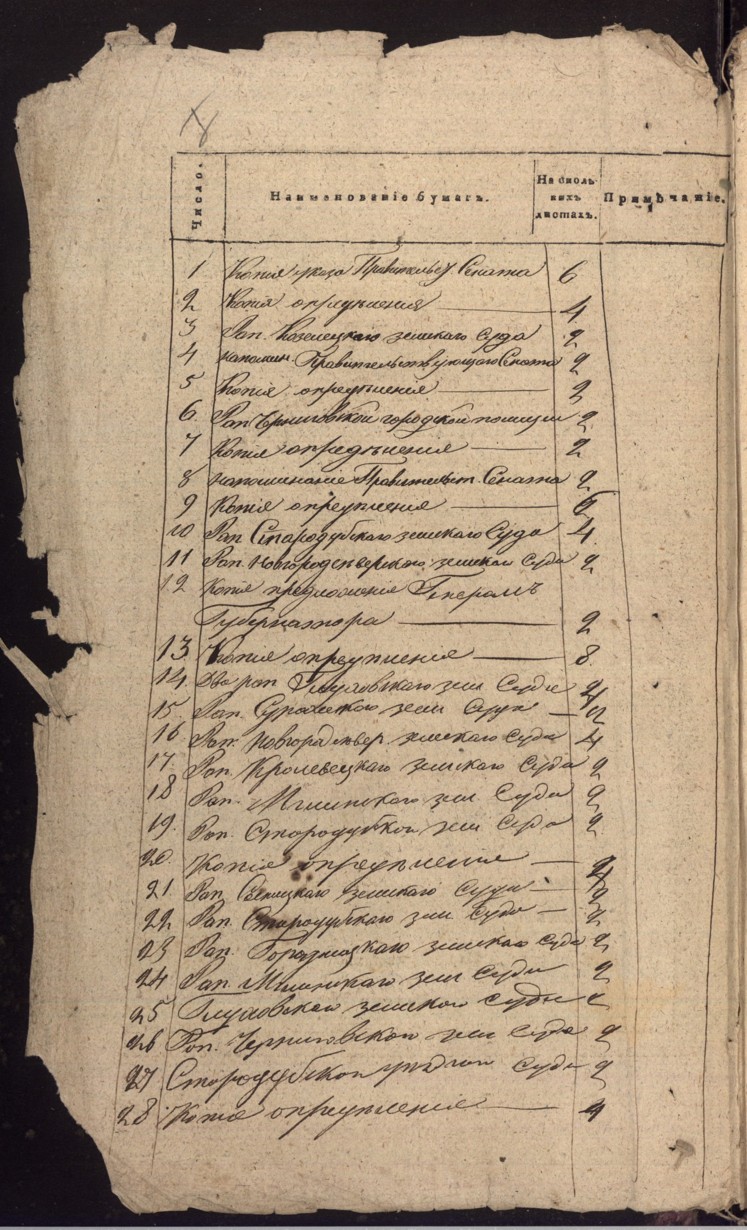 Число. Наименованіе бумагъ. На сколь-
кихъ
листахъ. Примѣчаніе.
1 Копія указа Правительст Сената 6
2 Копія опредѣленія 4
3 Рап. Козелецкаго земскаго суда 2
4 напомин. Правительствующаго Сената 2
5 Копія опредѣленія 2
6 Рап. Черниговской городской полиции 2
7 Копія опредѣленія 2
8 напоминание Правительст. Сената 2
9 Копія опредѣления 6
10 Рап Стародубскаго земскаго Суда 4
11 Рап. Новгородсѣверскаго земскаго Суда 2
12 Копія предложенія Генералъ
Губернатора 2
13 Копія опредѣления 8
14. Два рап Глуховскаго зем Суда 4
15 Рап. Суражскаго зем Суда 2
16 Рап. Новгородсѣвер. земскаго Суда 4
17. Рап. Кролевецкаго земскаго Суда 2
18 Рап. Мглинскаго зем Суда 2
19. Рап. Стародубской зем Суда 2
20. Копія опредѣления 4
21 Рап. земскаго Суда 2
22 Рап. Стародубскаго зем Суда 2
23 Рап. Городницкаго земскаго Суда 2
24 Рап. Мглинскаго зем Суда 2
25 Глуховскаго земскаго Суда 2
26 Рап. Черниговскаго зем Суда 2
27 Стародубской Суда 2
28 Копія опредѣления 4